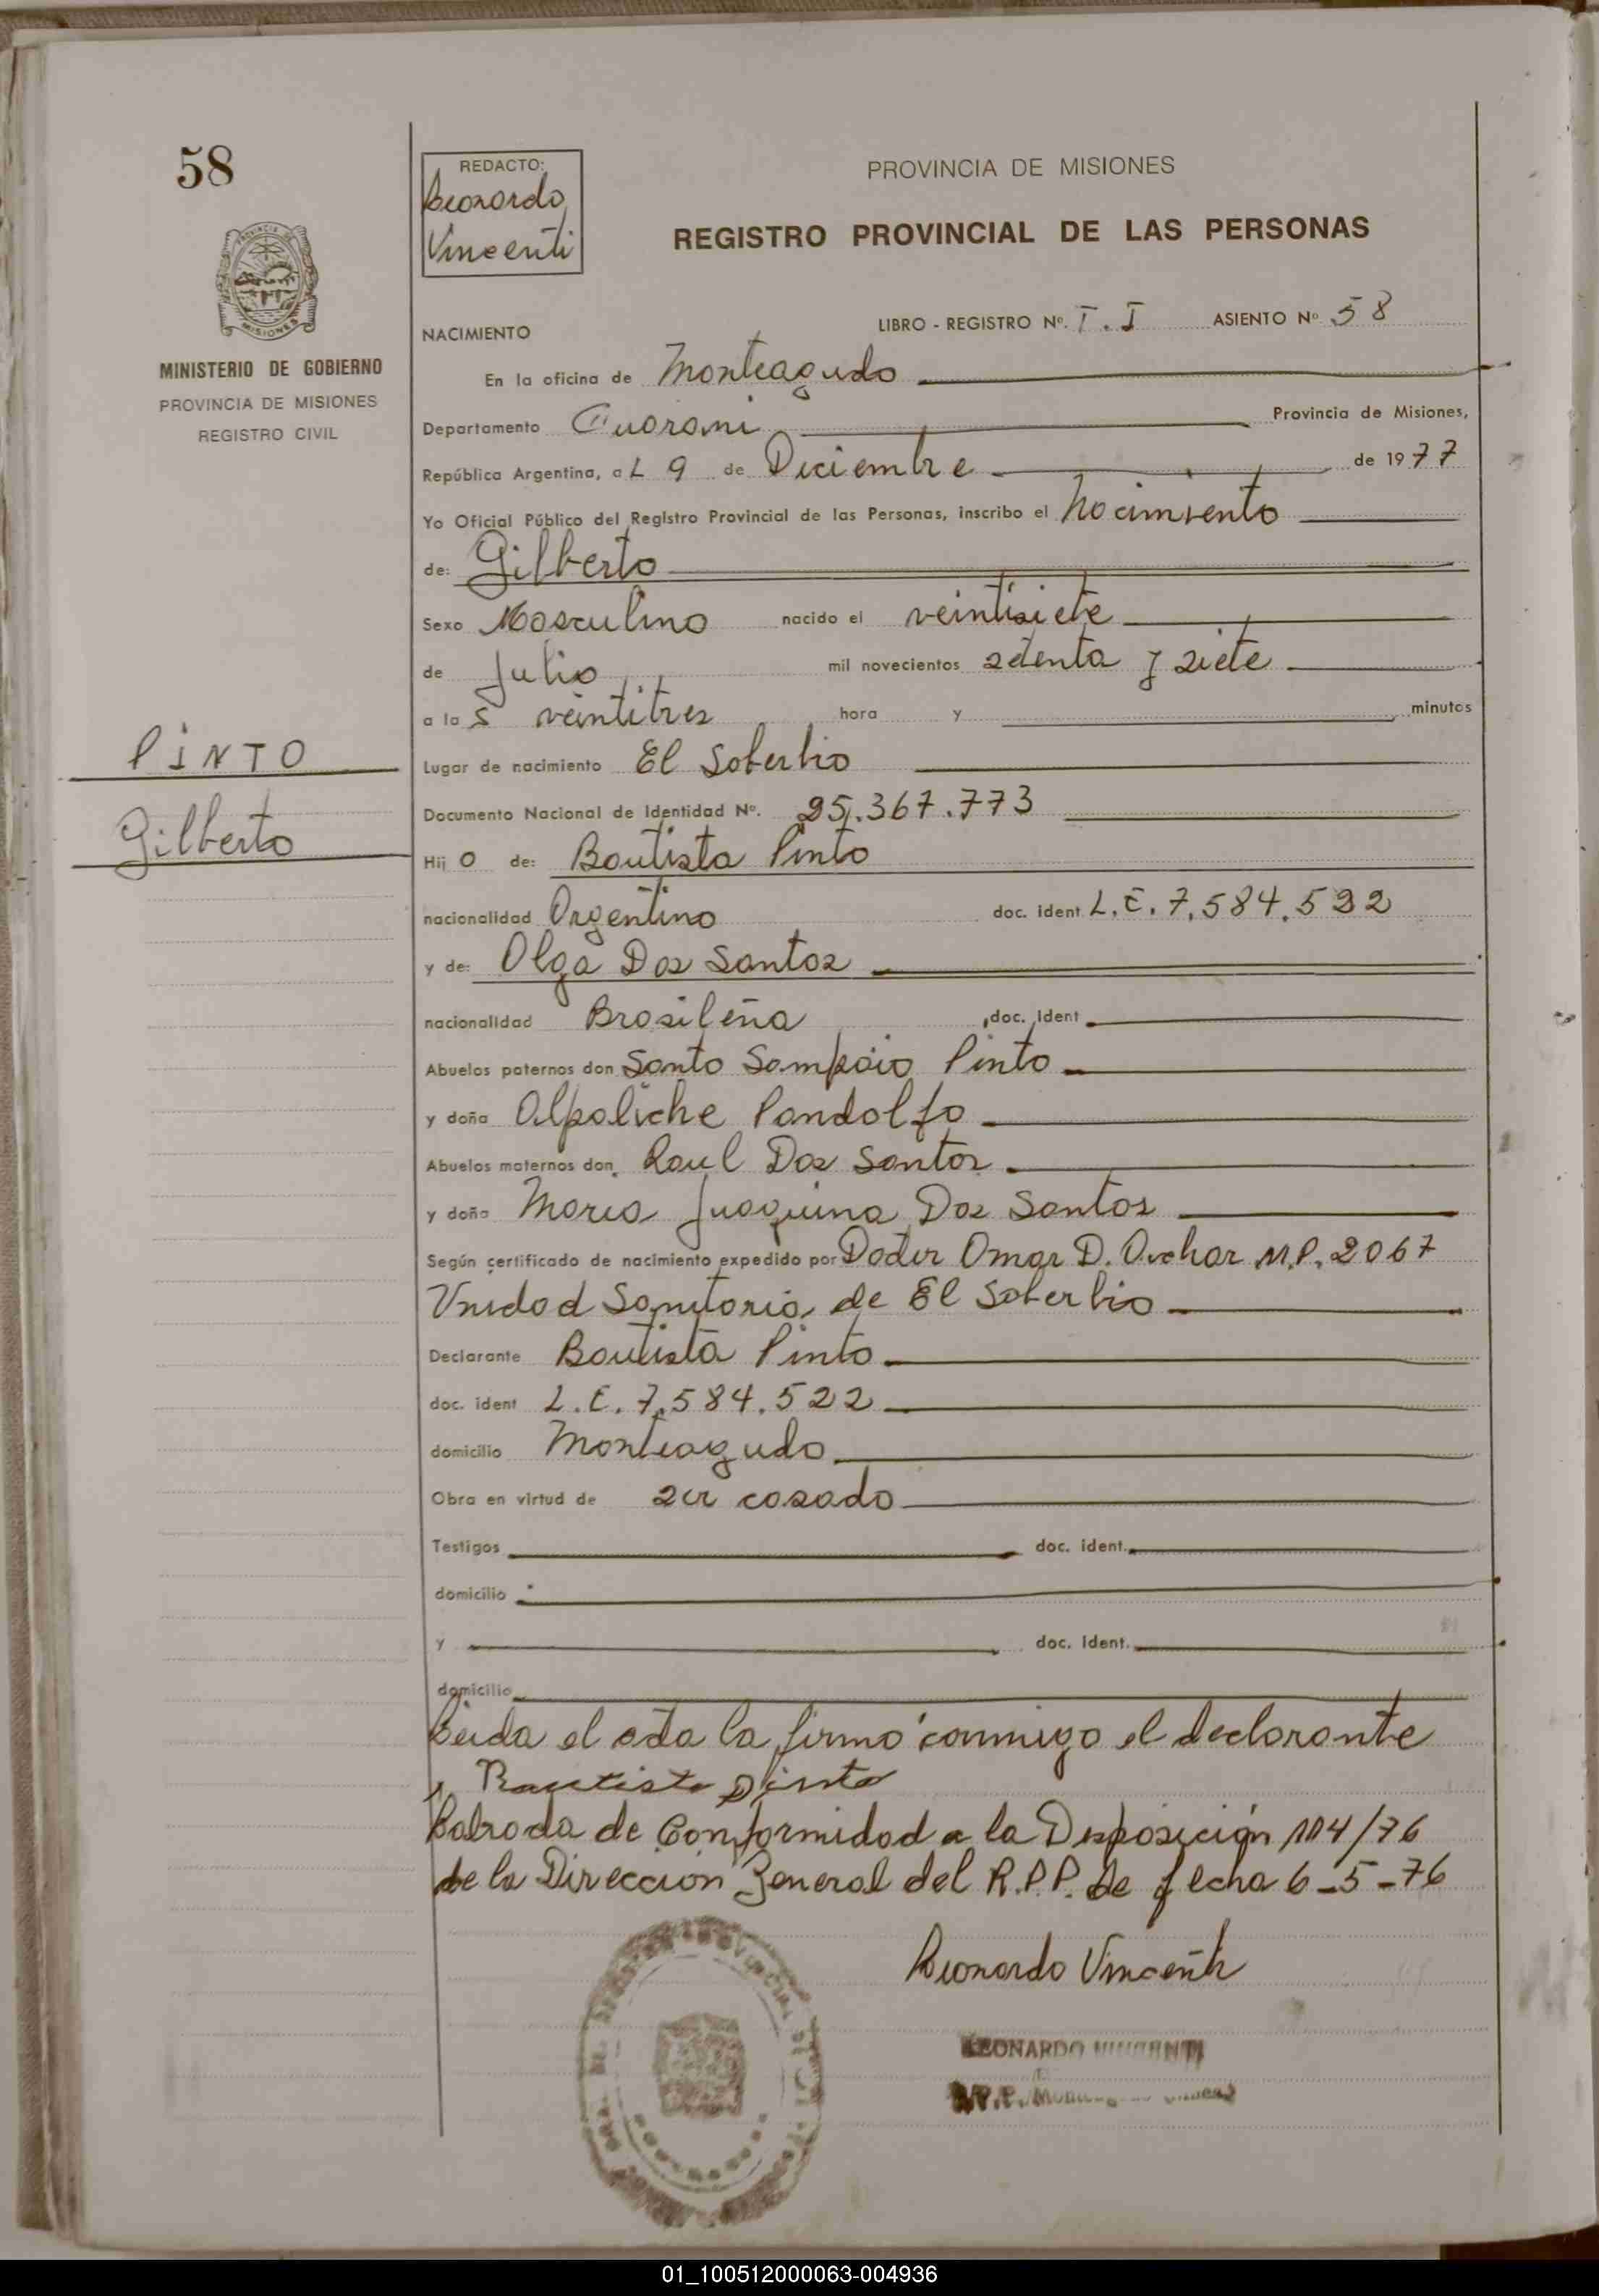 58
REDACTO:
Leonardo
Vincenti
PROVINCIA DE MISIONES
REGISTRO PROVINCIAL DE LAS PERSONAS
PROVINCIA DE
MISIONES
MINISTERIO DE GOBIERNO
PROVINCIA DE MISIONES
REGISTRO CIVIL
NACIMIENTO
LIBRO - REGISTRO Nº. T. I ASIENTO Nº 58
En la oficina de Monteagudo
Departamento Guarani Provincia de Misiones,
República Argentina, a L 9 de Diciembre de 1977
Yo Oficial Público del Registro Provincial de las Personas, inscribo el Nacimiento
de: Gilberto
Sexo Masculino nacido el veintisiete
de Julio mil novecientos setenta y siete
a la s veintitres hora y minutos
PINTO
Gilberto
Lugar de nacimiento El Soberbio
Documento Nacional de Identidad Nº. 25.367.773
Hij o de: Bautista Pinto
nacionalidad Argentino doc. ident L.E. 7.584.522
y de: Olga Dos Santos
nacionalidad Brasileña doc. ident
Abuelos paternos don Santo Sampaio Pinto
y doña Alpaliche Pandolfo
Abuelos maternos don Raul Dos Santos
y doña Maria Juaquina Dos Santos
Según certificado de nacimiento expedido por Doctor Omar D. M.P. 2067
Unidad Sanitaria de El Soberbio
Declarante Bautista Pinto
doc. ident L.E. 7.584.522
domicilio Monteagudo
Obra en virtud de ser casado
Testigos doc. ident.
domicilio
y doc. ident.
domicilio
Leida el acta la firmo conmigo el declarante
Bautista Pinto
Labrada de Conformidad a la Disposición 114/76
de la Dirección General del R.P.P. de fecha 6-5-76
Leonardo Vincenti
LEONARDO VINCENTI
01_100512000063-004936